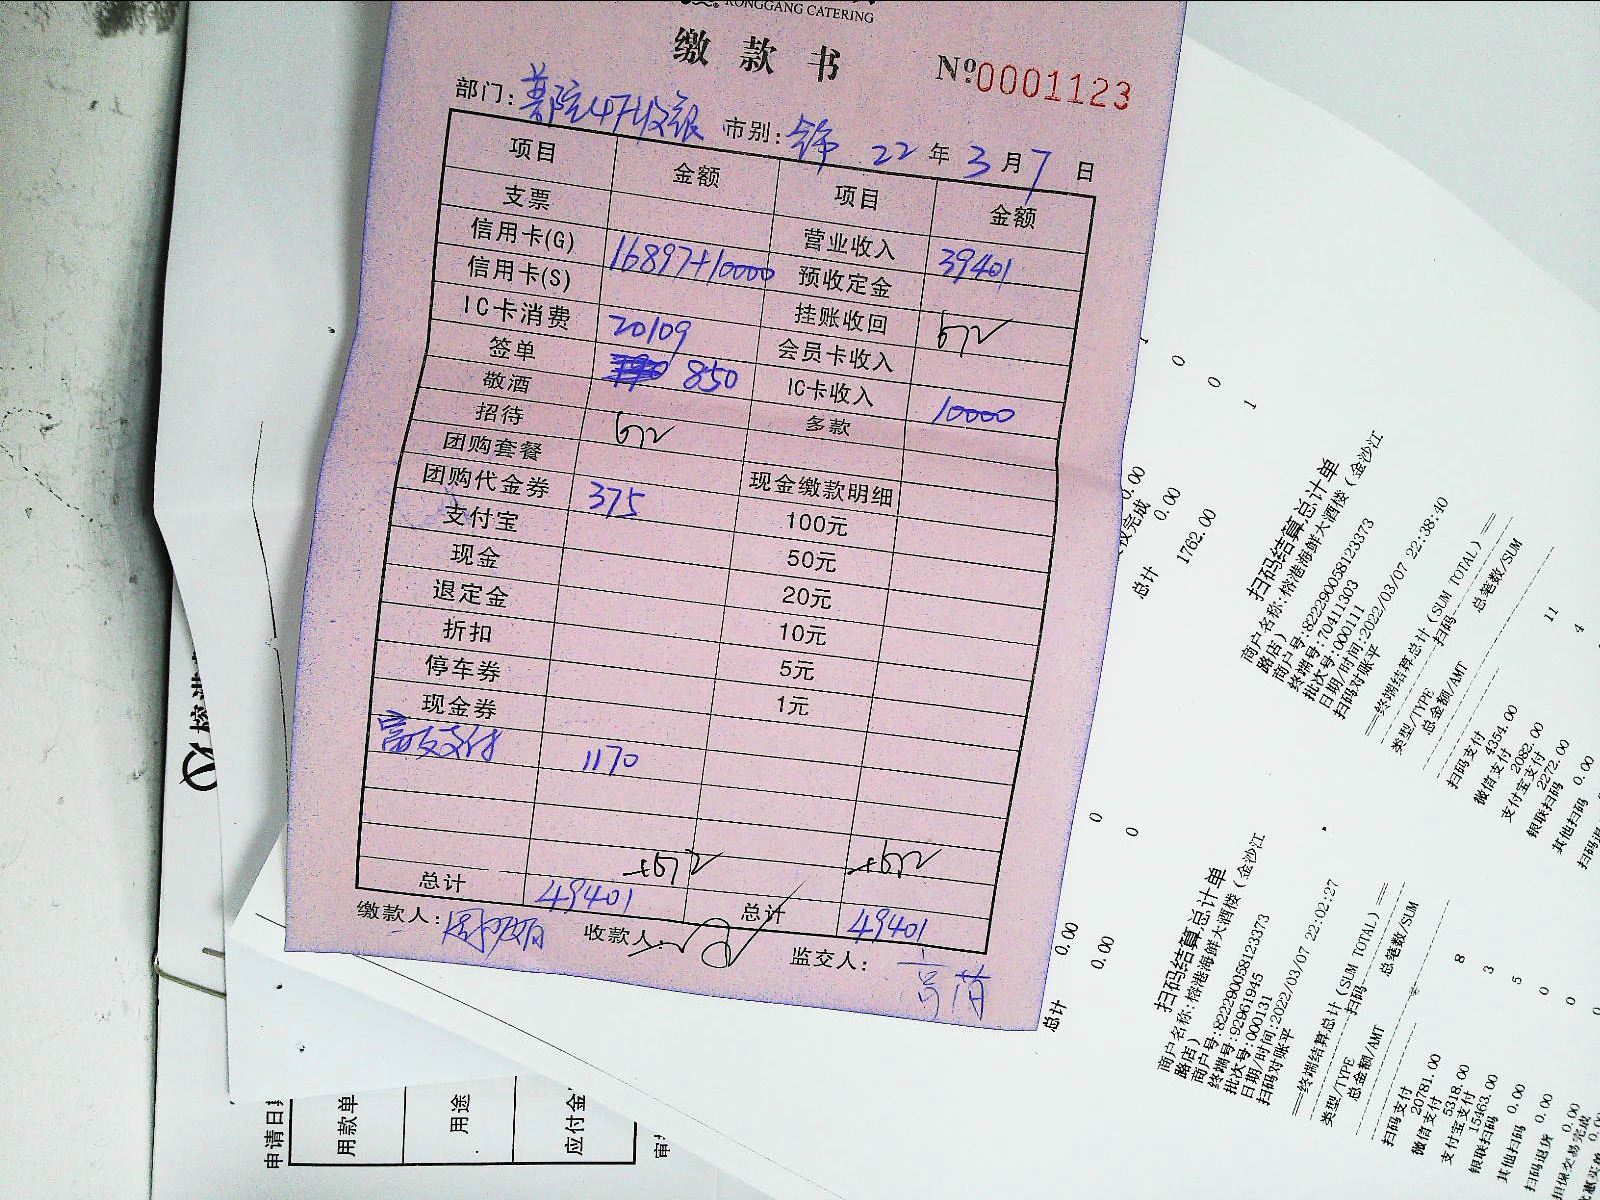 RONGGANG CATERING
缴款书
No.0001123
部门: 普陀4F收银 市别: 22年3月7日
项目 金额 项目 金额
支票 营业收入 39401
信用卡(G) 16897+10000 预收定金
信用卡(S) 挂账收回 672
IC卡消费 20109 会员卡收入
签单 850 IC卡收入 10000
敬酒 多款
招待 672
团购套餐 现金缴款明细
团购代金券 375 100元
支付宝 50元
现金 20元
退定金 10元
折扣 5元
停车券 1元
现金券
富友支付 1170
+672 +672
总计 49401 总计 49401
缴款人: 收款人: 监交人:
0
0
1
0.00
0.00
总计 1762.00
扫码结算总计单
商户名称:榕港海鲜大酒楼(金沙江
路店)
商户号:822290058123373
终端号:70411303
批次号:000111
日期/时间:2022/03/07 22:38:40
扫码对账平
==终端结算总计(SUM TOTAL)==
扫码
类型/TYPE 总笔数/SUM
总金额/AMT
扫码支付 11
4354.00
微信支付 4
2082.00
支付宝支付
2272.00
银联扫码
其他扫码 0.00
0
0
0.00
总计 0.00
扫码结算总计单
商户名称:榕港海鲜大酒楼(金沙江
路店)
商户号:822290058123373
终端号:92961945
批次号:000131
日期/时间:2022/03/07 22:02:27
扫码对账平
==终端结算总计(SUM TOTAL)==
扫码
类型/TYPE 总笔数/SUM
总金额/AMT
扫码支付 8
20781.00
微信支付 3
5318.00
支付宝支付 5
15463.00
银联扫码 0
0.00
其他扫码 0
0.00
扫码退货
0.00
担保交易完成
申请日
用款单
用途
应付金